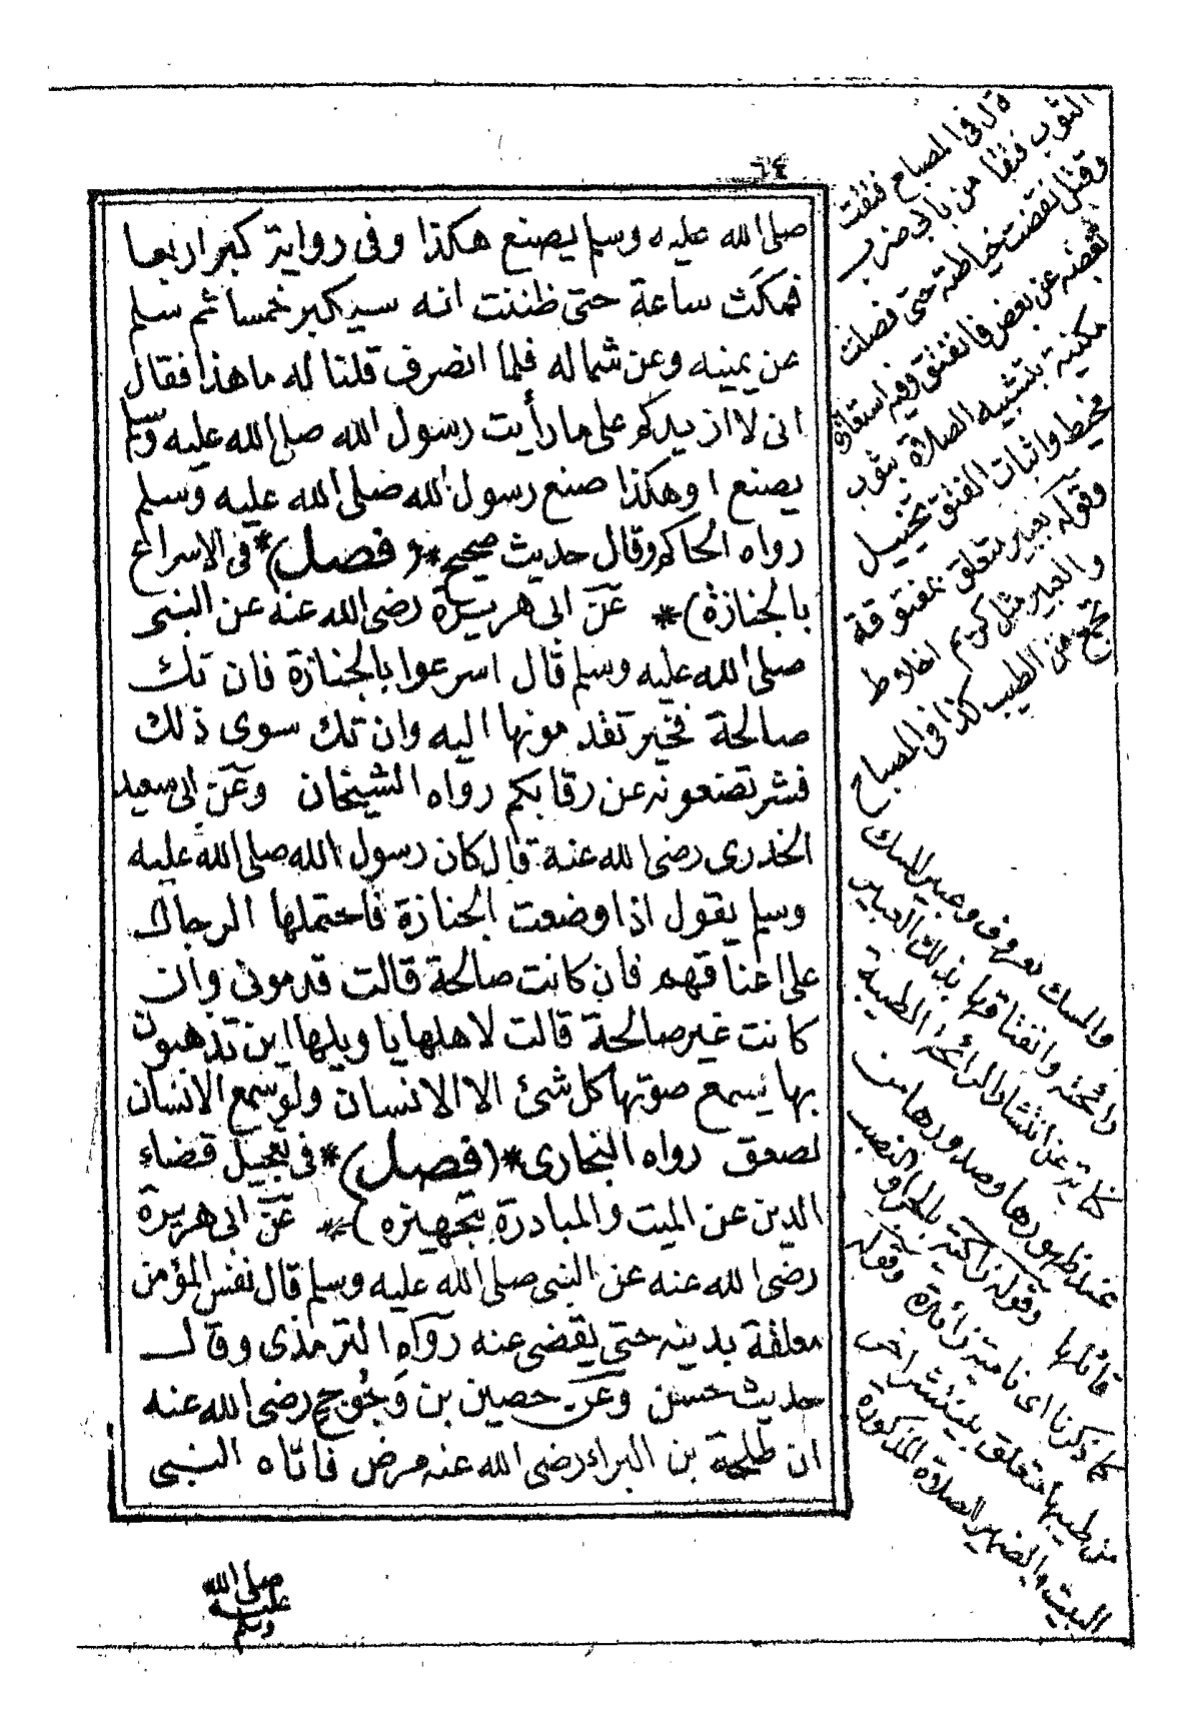 ٦٤
صلى الله عليه وسلم يصنع هكذا وفى رواية كبر اربعا
فمكث ساعة حتى ظننت انه سيكبر خمسا ثم سلم
عن يمينه وعن شماله فلما انصرف قلنا له ما هذا فقال
انى لا ازيدكم على ما رأيت رسول الله صلى الله عليه وسلم
يصنع او هكذا صنع رسول الله صلى الله عليه وسلم
رواه الحاكم وقال حديث صحيح *( فصل )* فى الاسراع
بالجنازة )* عن ابى هريرة رضى الله عنه عن النبى
صلى الله عليه وسلم قال اسرعوا بالجنازة فان تك
صالحة فخير تقدمونها اليه وان تك سوى ذلك
فشر تضعونه عن رقابكم رواه الشيخان وعن ابى سعيد
الخدرى رضى الله عنه قال كان رسول الله صلى الله عليه
وسلم يقول اذا وضعت الجنازة فاحتملها الرجال
على اعناقهم فان كانت صالحة قالت قدمونى وان
كانت غير صالحة قالت لاهلها يا ويلها اين تذهبون
بها يسمع صوتها كل شئ الا الانسان ولو سمع الانسان
لصعق رواه البخارى *( فصل )* فى تعجيل قضاء
الدين عن الميت والمبادرة بتجهيزه )* عن ابى هريرة
رضى الله عنه عن النبى صلى الله عليه وسلم قال نفس المؤمن
معلقة بدينه حتى يقضى عنه رواه الترمذى وقال
حديث حسن وعن حصين بن وحوح رضى الله عنه
ان طلحة بن البراء رضى الله عنه مرض فاتاه النبى
صلى الله
عليه
وسلم
قال فى المصباح فتقت
الثوب فتقا من باب ضرب
وقتل نقضت خياطته حتى فصلت
بعضه عن بعض فانفتق وفيه استعارة
مكنية بتشبيه الصلاة بثوب
مخيط واثبات الفتق تخييل
وقوله بعبير متعلق بمفتوقة
والعبير مثل كريم اخلاط
تجمع من الطيب كذا فى المصباح
والمسك معروف وعبير المسك
رائحته وانفتاقها بذلك العبير
كناية عن انتشار الرائحة الطيبة
عند ظهورها وصدورها من
قائلها وقوله زاكية بالجر او النصب
كما ذكرنا اى نامية زائدة وقوله
من طيبها متعلق بينتشر اخر
البيت والضمير للصلاة المذكورة